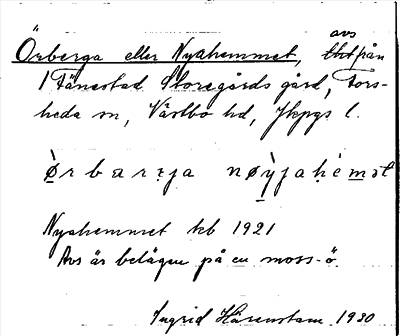 Örberga eller Nyahemmet, avs från
1 Tånestad Storegårds gård, Fors-
heda sn, Västbo hd, Jkpgs l.
Nyahemmet kb 1921
Avs är belägen på en moss-ö
Ingrid Härenstam 1930